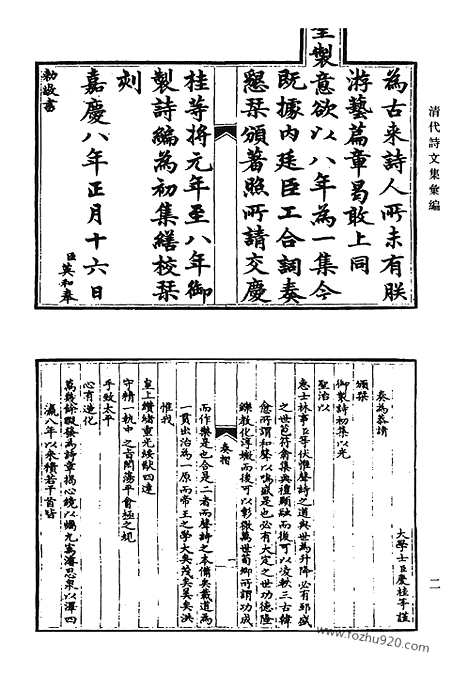 清代詩文集彙編
二
為古来詩人所未有朕
游藝篇章曷敢上同
聖製意欲以八年為一集今
既據内廷臣工合詞奏
懇栞頒著照所請交慶
桂等將元年至八年御
製詩編為初集繕校栞
刻
嘉慶八年正月十六日
臣英和奉
勅敬書
大學士臣慶桂等謹
奏為恭請
頒栞
御製詩初集以光
聖治以
惠士林事臣等伏惟聲詩之道與世為升降必有郅盛
之世苞符龠集典禮顯融而後可以凌軼三古韓
愈所謂和聲以鳴盛是也必有大定之世功德隆
鑠教化淳孅而後可以彰徽萬世荀卿所謂功成
奏摺
而作樂是也合是二者而聲詩之本備矣載道為
一貫出治為一原而帝王之學大矣茂矣昊矣洪
惟我
皇上纘緒重光綏猷四逹
守精一執中之旨闡蕩平會極之規
手致太平
心有造化
萬幾餘暇發為詩章揭心鏡以燭元寓濬思泉以澤四
瀛八年以来積若干首皆
www.fozhu920.com